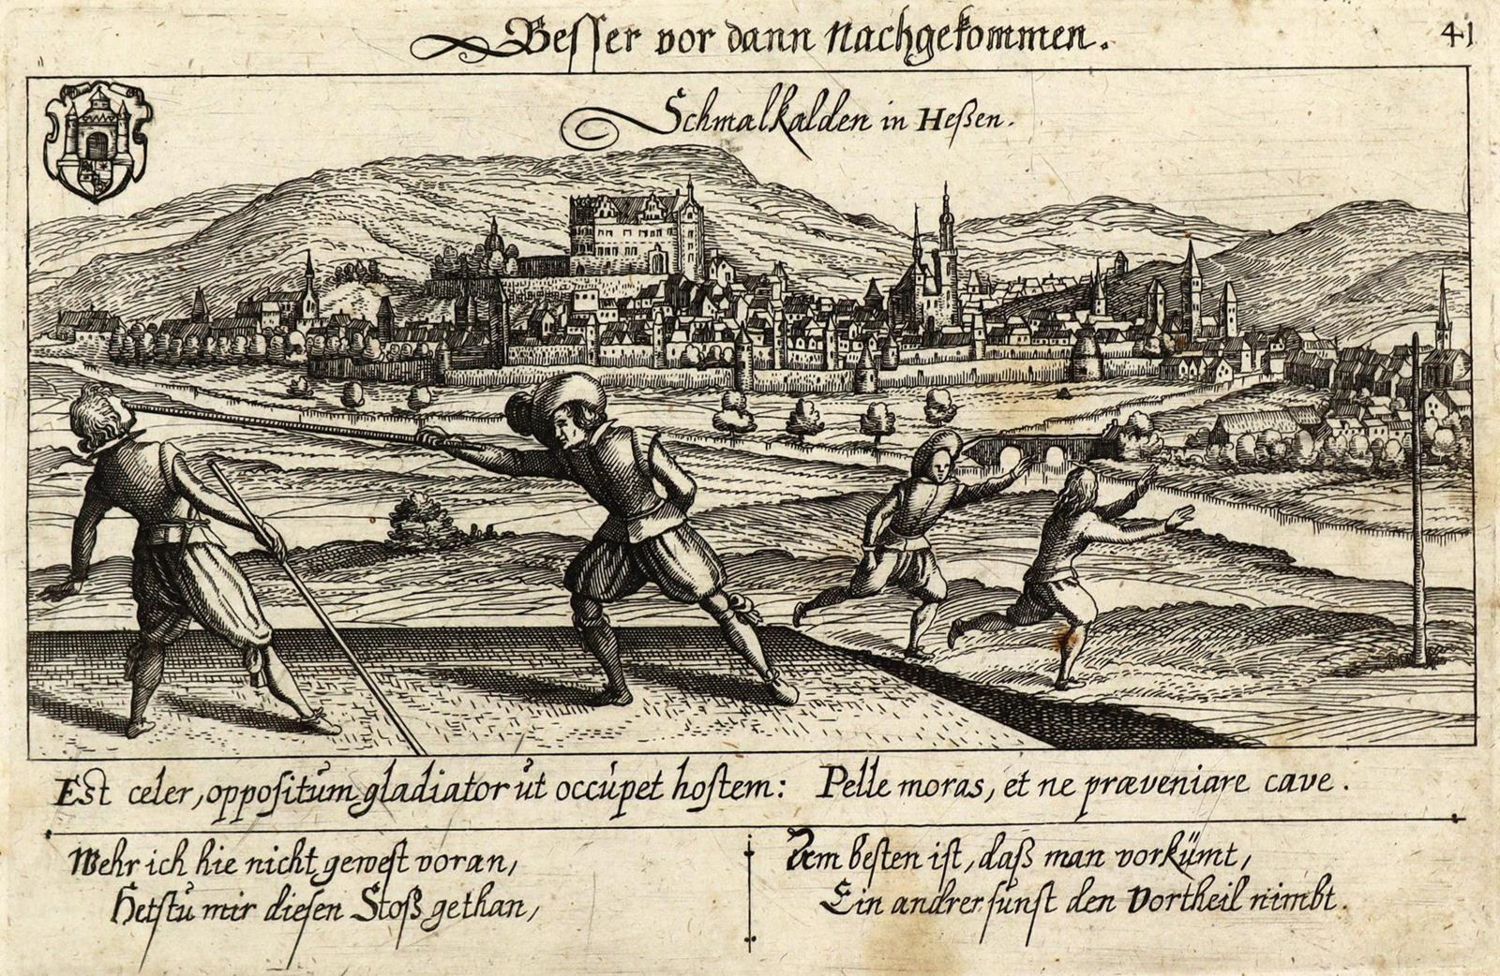 Besser vor dann Nachgekommen.
41
Schmalkalden in Heßen.
Est celer, oppositum gladiator ut occupet hostem: Pelle moras, et ne præveniare cave.
Wehr ich hie nicht gewest voran,
Hetstu mir diesen Stoß gethan,
Dem besten ist, daß man vorkümt,
Ein andrer sunst den Vortheil nimbt.